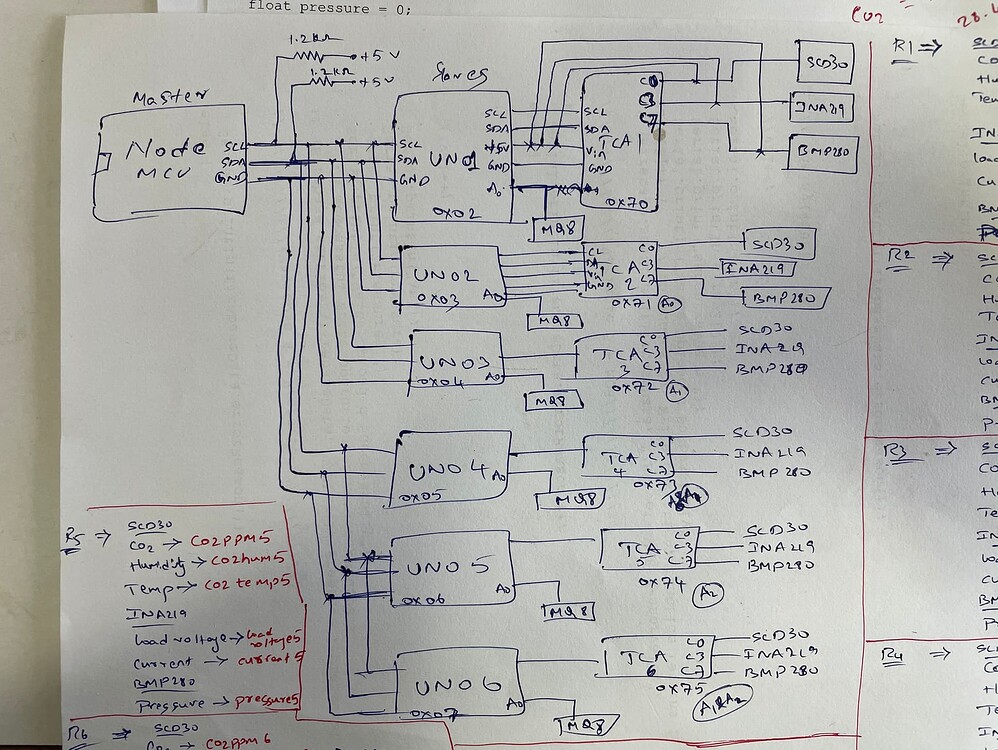 float pressure = 0;
CO2
28.
1.2kΩ
+5v
1.2kΩ
+5v
Master
Node
MCU
SCL
SDA
GND
Slaves
SCL
SDA
GND
UNO1
0x02
SCL
SDA
+5v
GND
A0
SCL
SDA
Vin
GND
TCA 1
C0
C3
C7
0x70
SCD30
INA219
BMP280
MQ8
UNO2
0x03
A0
CL
DA
Vin
GND
TCA
2
C0
C3
C7
0x71 A0
SCD30
INA219
BMP280
MQ8
UNO3
0x04
A0
TCA
3
C0
C3
C7
0x72 A1
SCD30
INA219
BMP280
MQ8
UNO 4
0x05
A0
TCA
4
C0
C3
C7
0x73
SCD30
INA219
BMP280
MQ8
UNO 5
0x06
A0
TCA
5
C0
C3
C7
0x74 A2
SCD30
INA219
BMP280
MQ8
UNO 6
0x07
A0
TCA
6
C0
C3
C7
0x75
SCD30
INA219
BMP280
MQ8
R5 ⇒ SCD30
CO2 → CO2ppm5
Humidity → CO2hum5
Temp → CO2temp5
INA219
load voltage → load voltage5
Current → current5
BMP280
Pressure → pressure5
R6 ⇒ SCD30
CO2ppm6
R1 ⇒
R2 ⇒
R3 ⇒
R4 ⇒